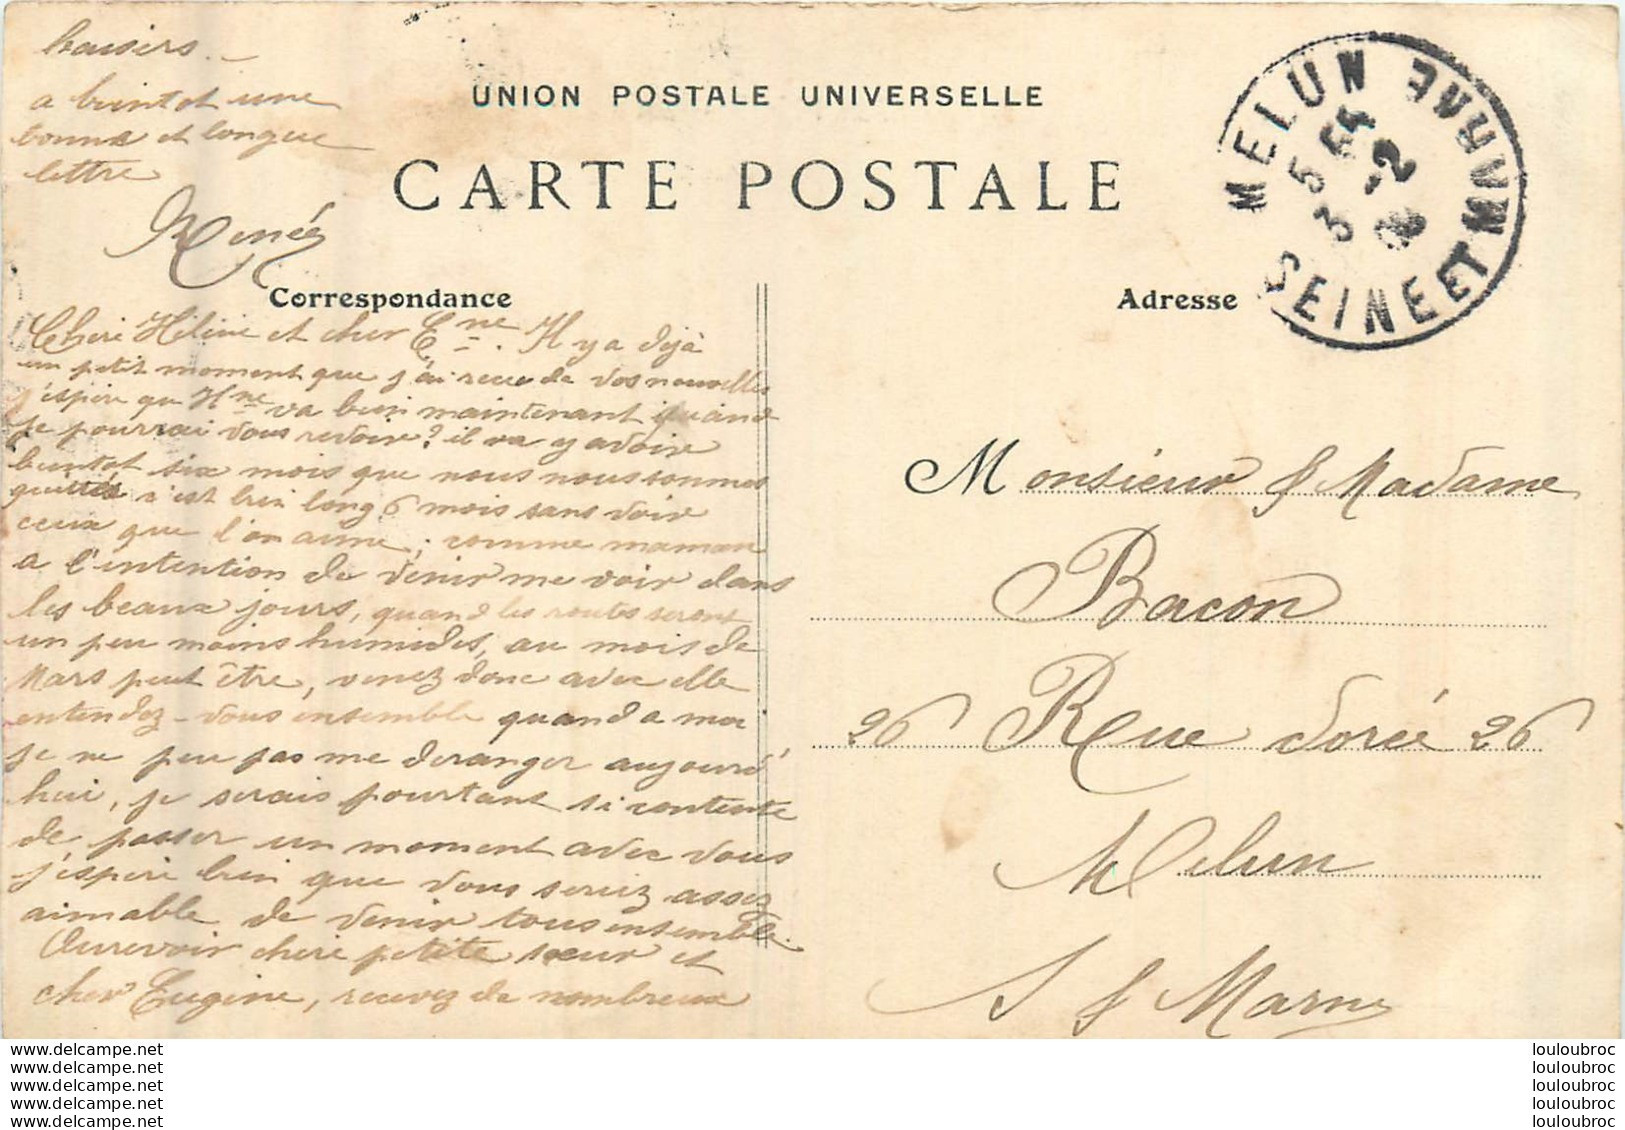 UNION POSTALE UNIVERSELLE
CARTE POSTALE
Correspondance
Adresse
MELUN
SEINE ET MARNE
3 55
3 -2
Chere Hélène et cher Ene. Il y a déjà
un petit moment que j'ai recu de vos nouvelles
j'espère qu Hne va bien maintenant quand
je pourrai vous revoire? il va y avoire
bientot six mois que nous nous sommes
quittés c'est bien long 6 mois sans voir
ceux que l'on aime, comme maman
a l'intention de venir me voir dans
les beaux jours, quand les routes seront
un peu moins humides, au mois de
Mars peut être, venez donc avec elle
entendez-vous ensemble quand a moi
je ne peu pas me deranger aujourd'
hui, je serais pourtant si contente
de passer un moment avec vous
j'espère bien que vous serez assez
aimable de venir tous ensemble.
Aurevoir chere petite sœur et
cher Eugène, recevez de nombreux
baisers _
a bientot une
bonne et longue
lettre
Renée
Monsieur & Madame
Bacon
26 Rue dorée 26
Melun
S & Marne
www.delcampe.net
www.delcampe.net
www.delcampe.net
www.delcampe.net
www.delcampe.net
louloubroc
louloubroc
louloubroc
louloubroc
louloubroc